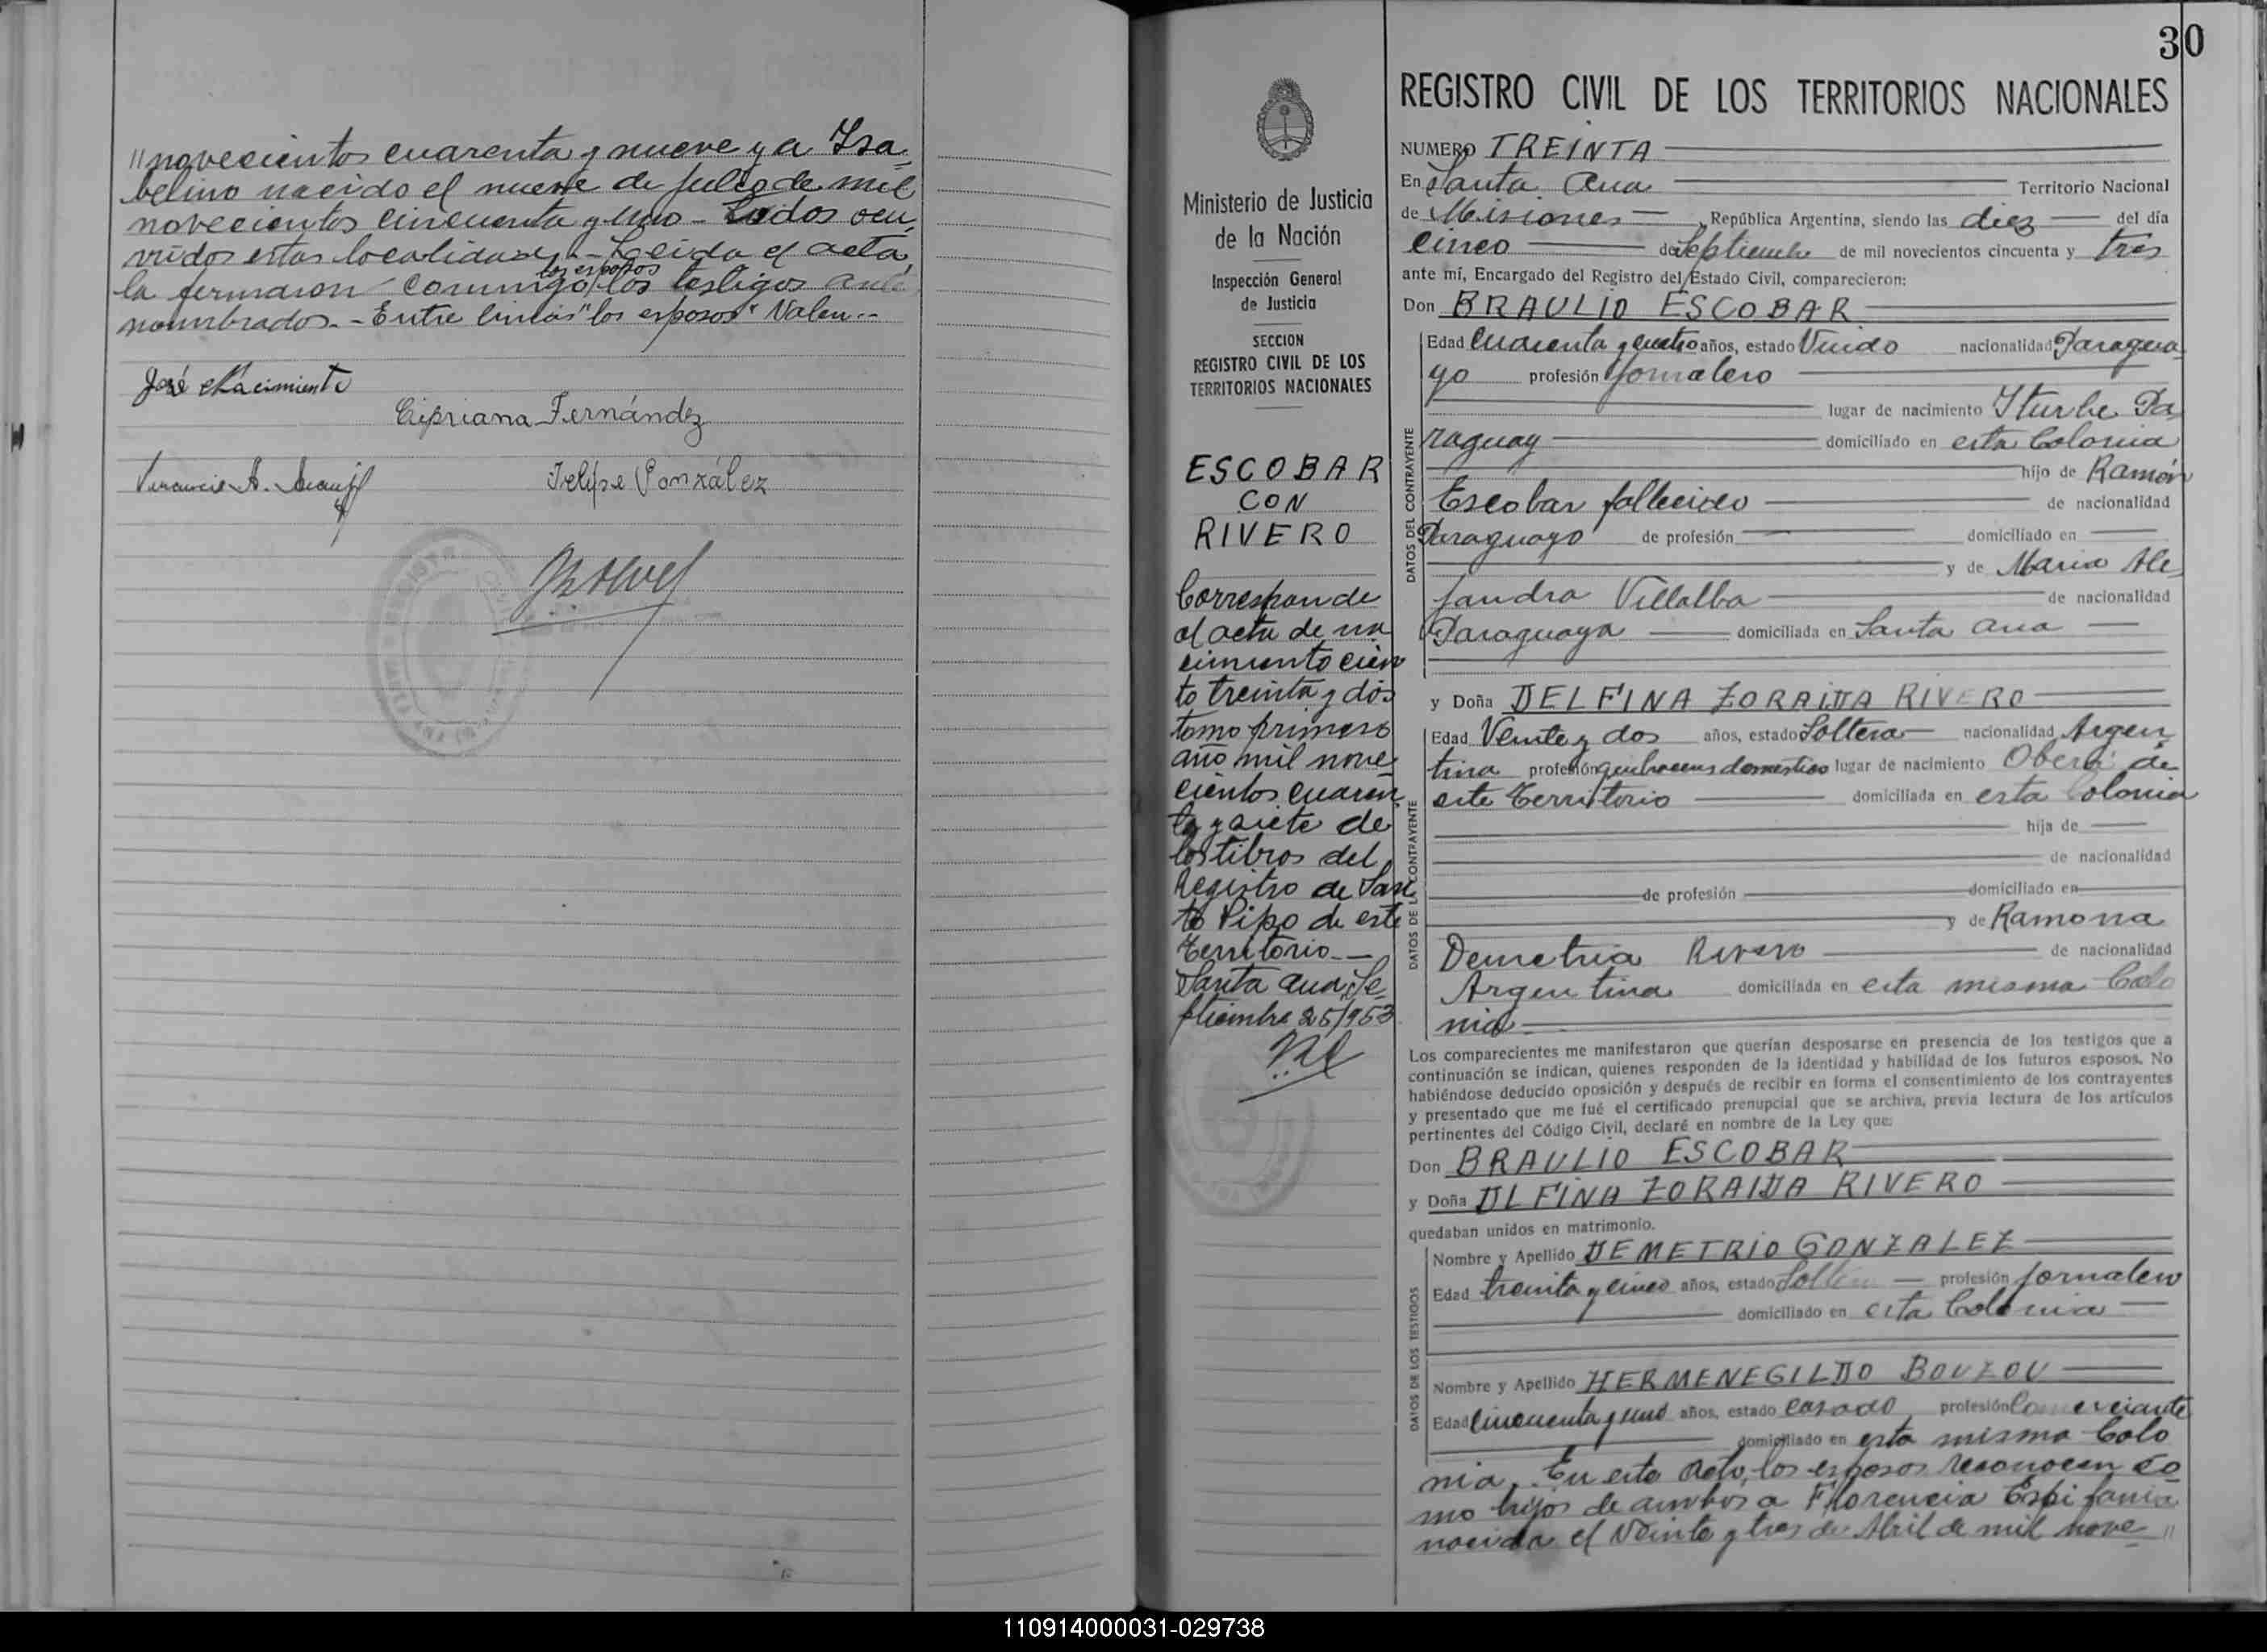 "novecientos cuarenta y nueve y a Isa-
belino nacido el nueve de Julio de mil
novecientos cincuenta y uno - Todos ocu-
rridos estas localidades. - Leida el acta,
los esposos
la firmaron conmigo, los testigos ante
nombrados. - Entre lineas "los esposos" Valen. -
José Nacimiento
Cipriana Fernández
Felipe González
30
REGISTRO CIVIL DE LOS TERRITORIOS NACIONALES
NUMERO TREINTA
En Santa Ana Territorio Nacional
de Misiones, República Argentina, siendo las diez del día
cinco de Septiembre de mil novecientos cincuenta y tres
ante mí, Encargado del Registro del Estado Civil, comparecieron:
Don BRAULIO ESCOBAR
Edad Cuarenta y cuatro años, estado Viudo nacionalidad Paragua-
yo profesión jornalero
lugar de nacimiento Iturbe Pa-
raguay domiciliado en esta Colonia
hijo de Ramón
Escobar fallecido de nacionalidad
Paraguayo de profesión domiciliado en
y de Maria Ale-
jandra Villalba de nacionalidad
Paraguaya domiciliada en Santa Ana
y Doña DELFINA ZORAIDA RIVERO
Edad Veinte y dos años, estado Soltera nacionalidad Argen-
tina profesión quehaceres domesticos lugar de nacimiento Oberá de
este Territorio domiciliada en esta Colonia
hija de
de nacionalidad
de profesión domiciliado en
y de Ramona
Demetria Rivero de nacionalidad
Argentina domiciliada en esta misma Colo
nia
Los comparecientes me manifestaron que querían desposarse en presencia de los testigos que a
continuación se indican, quienes responden de la identidad y habilidad de los futuros esposos. No
habiéndose deducido oposición y después de recibir en forma el consentimiento de los contrayentes
y presentado que me fué el certificado prenupcial que se archiva, previa lectura de los artículos
pertinentes del Código Civil, declaré en nombre de la Ley que:
Don BRAULIO ESCOBAR
y Doña DLFINA ZORAIDA RIVERO
quedaban unidos en matrimonio.
Nombre y Apellido DEMETRIO GONZALEZ
Edad treinta y cinco años, estado Soltero profesión jornalero
domiciliado en esta Colonia
Nombre y Apellido HERMENEGILDO BOUZOU
Edad Cincuenta y uno años, estado casado profesión Comerciante
domiciliado en esta misma Colo
nia. En este Acto, los esposos reconocen co-
mo hijos de ambos a Florencia Espifania
nacida el veinte y tres de Abril de mil nove "
DATOS DEL CONTRAYENTE
DATOS DE LA CONTRAYENTE
DATOS DE LOS TESTIGOS
Ministerio de Justicia
de la Nación
Inspección General
de Justicia
SECCION
REGISTRO CIVIL DE LOS
TERRITORIOS NACIONALES
ESCOBAR
CON
RIVERO
Corresponde
al acta de na
cimiento cien
to treinta y dos
tomo primero
año mil nove-
cientos cuaren
ta y siete de
los libros del
Registro de San
to Pipo de este
Territorio. -
Santa Ana, Se-
ptiembre 25/953
110914000031-029738